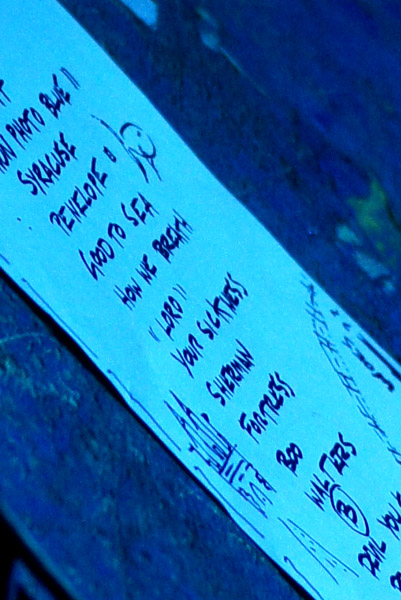 PHOTO BLUE"
SYRACUSE
PENELOPE
GOOD TO SEA
HOW WE BREATH
"LORD"
YOUR SICKNESS
SHERMAN
FORTRESS
BOO
WALTERS
B
DEVIL YOU